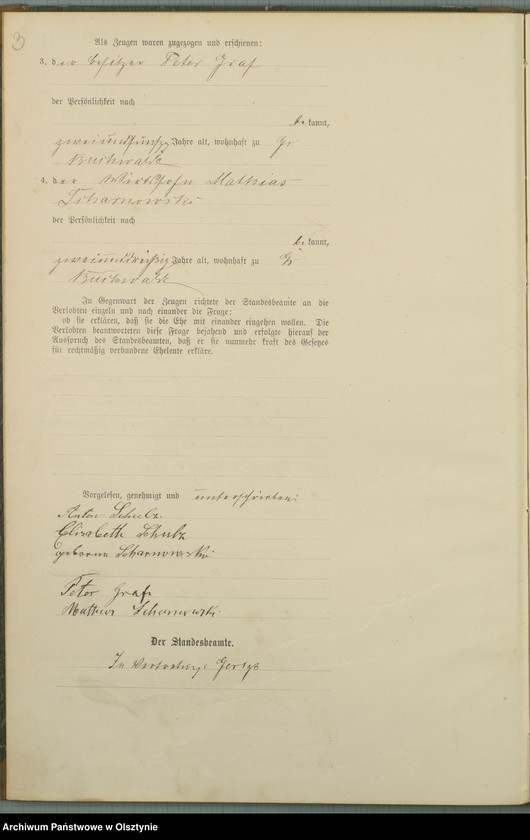 3
Als Zeugen waren zugezogen und erschienen:
3. der Besitzer Peter Graf
der Persönlichkeit nach
be kannt,
zweiundfünfzig Jahre alt, wohnhaft zu Gr
Buchwalde
4. der Wirthssohn Mathias
Scharnowski
der Persönlichkeit nach
be kannt,
zweiunddreißig Jahre alt, wohnhaft zu Gr
Buchwalde
In Gegenwart der Zeugen richtete der Standesbeamte an die
Verlobten einzeln und nach einander die Frage:
ob sie erklären, daß sie die Ehe mit einander eingehen wollen. Die
Verlobten beantworteten diese Frage bejahend und erfolgte hierauf der
Ausspruch des Standesbeamten, daß er sie nunmehr kraft des Gesetzes
für rechtmäßig verbundene Eheleute erkläre.
Vorgelesen, genehmigt und unterschrieben:
Anton Schulz
Elisabeth Schulz
geborene Scharnowski
Peter Graf
Mathias Scharnowski
Der Standesbeamte.
In Vertretung
Archiwum Państwowe w Olsztynie